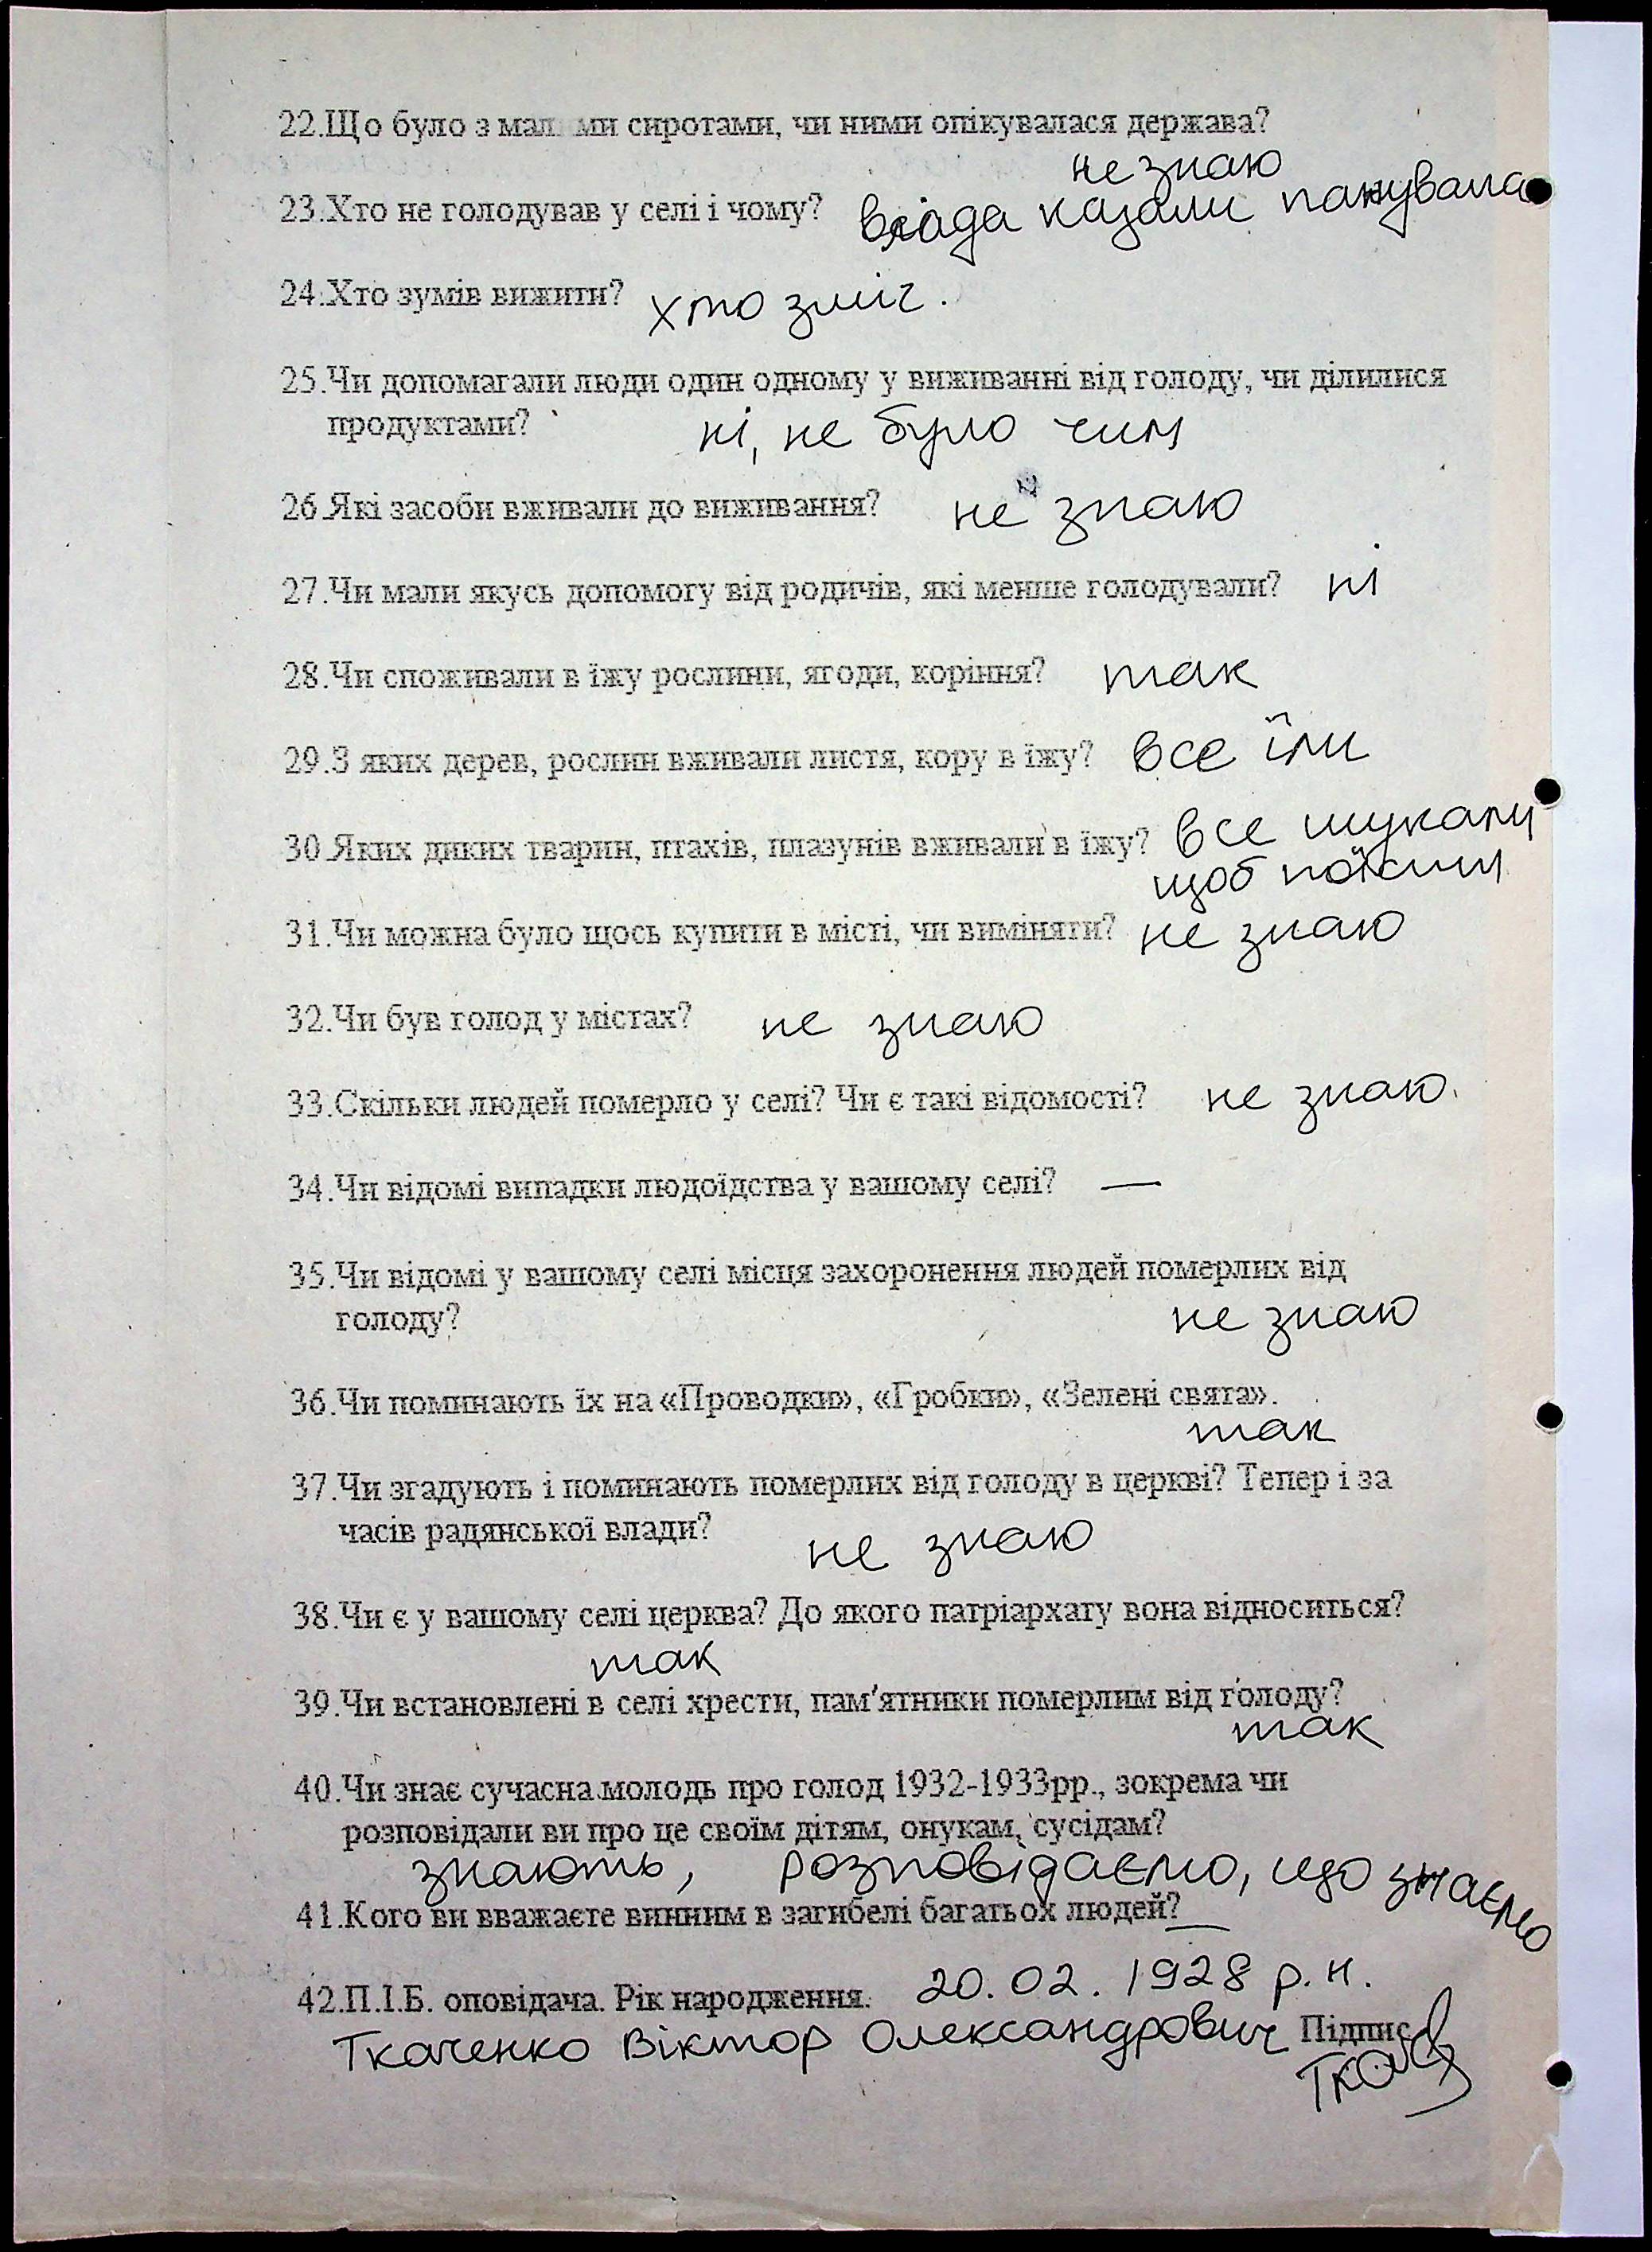 22.Що було з малими сиротами, чи ними опікувалася держава?
не знаю
23.Хто не голодував у селі і чому? влада казали панувала
24.Хто зумів вижити? хто зміг.
25.Чи допомагали люди один одному у виживанні від голоду, чи ділилися
продуктами? ні, не було чим
26.Які засоби вживали до виживання? не знаю
27.Чи мали якусь допомогу від родичів, які менше голодували? ні
28.Чи споживали в їжу рослини, ягоди, коріння? так
29.З яких дерев, рослин вживали листя, кору в їжу? все їли
30.Яких диких тварин, птахів, плазунів вживали в їжу? все шукали
щоб поїсти
31.Чи можна було щось купити в місті, чи виміняти? не знаю
32.Чи був голод у містах? не знаю
33.Скільки людей померло у селі? Чи є такі відомості? не знаю.
34.Чи відомі випадки людоїдства у вашому селі? —
35.Чи відомі у вашому селі місця захоронення людей померлих від
голоду? не знаю
36.Чи поминають їх на «Проводки», «Гробки», «Зелені свята».
так
37.Чи згадують і поминають померлих від голоду в церкві? Тепер і за
часів радянської влади? не знаю
38.Чи є у вашому селі церква? До якого патріархату вона відноситься?
так
39.Чи встановлені в селі хрести, пам'ятники померлим від голоду?
так
40.Чи знає сучасна молодь про голод 1932-1933рр., зокрема чи
розповідали ви про це своїм дітям, онукам, сусідам?
знають, розповідаємо, що знаємо
41.Кого ви вважаєте винним в загибелі багатьох людей? —
42.П.І.Б. оповідача. Рік народження. 20.02.1928 р.н.
Ткаченко Віктор Олександрович Підпис